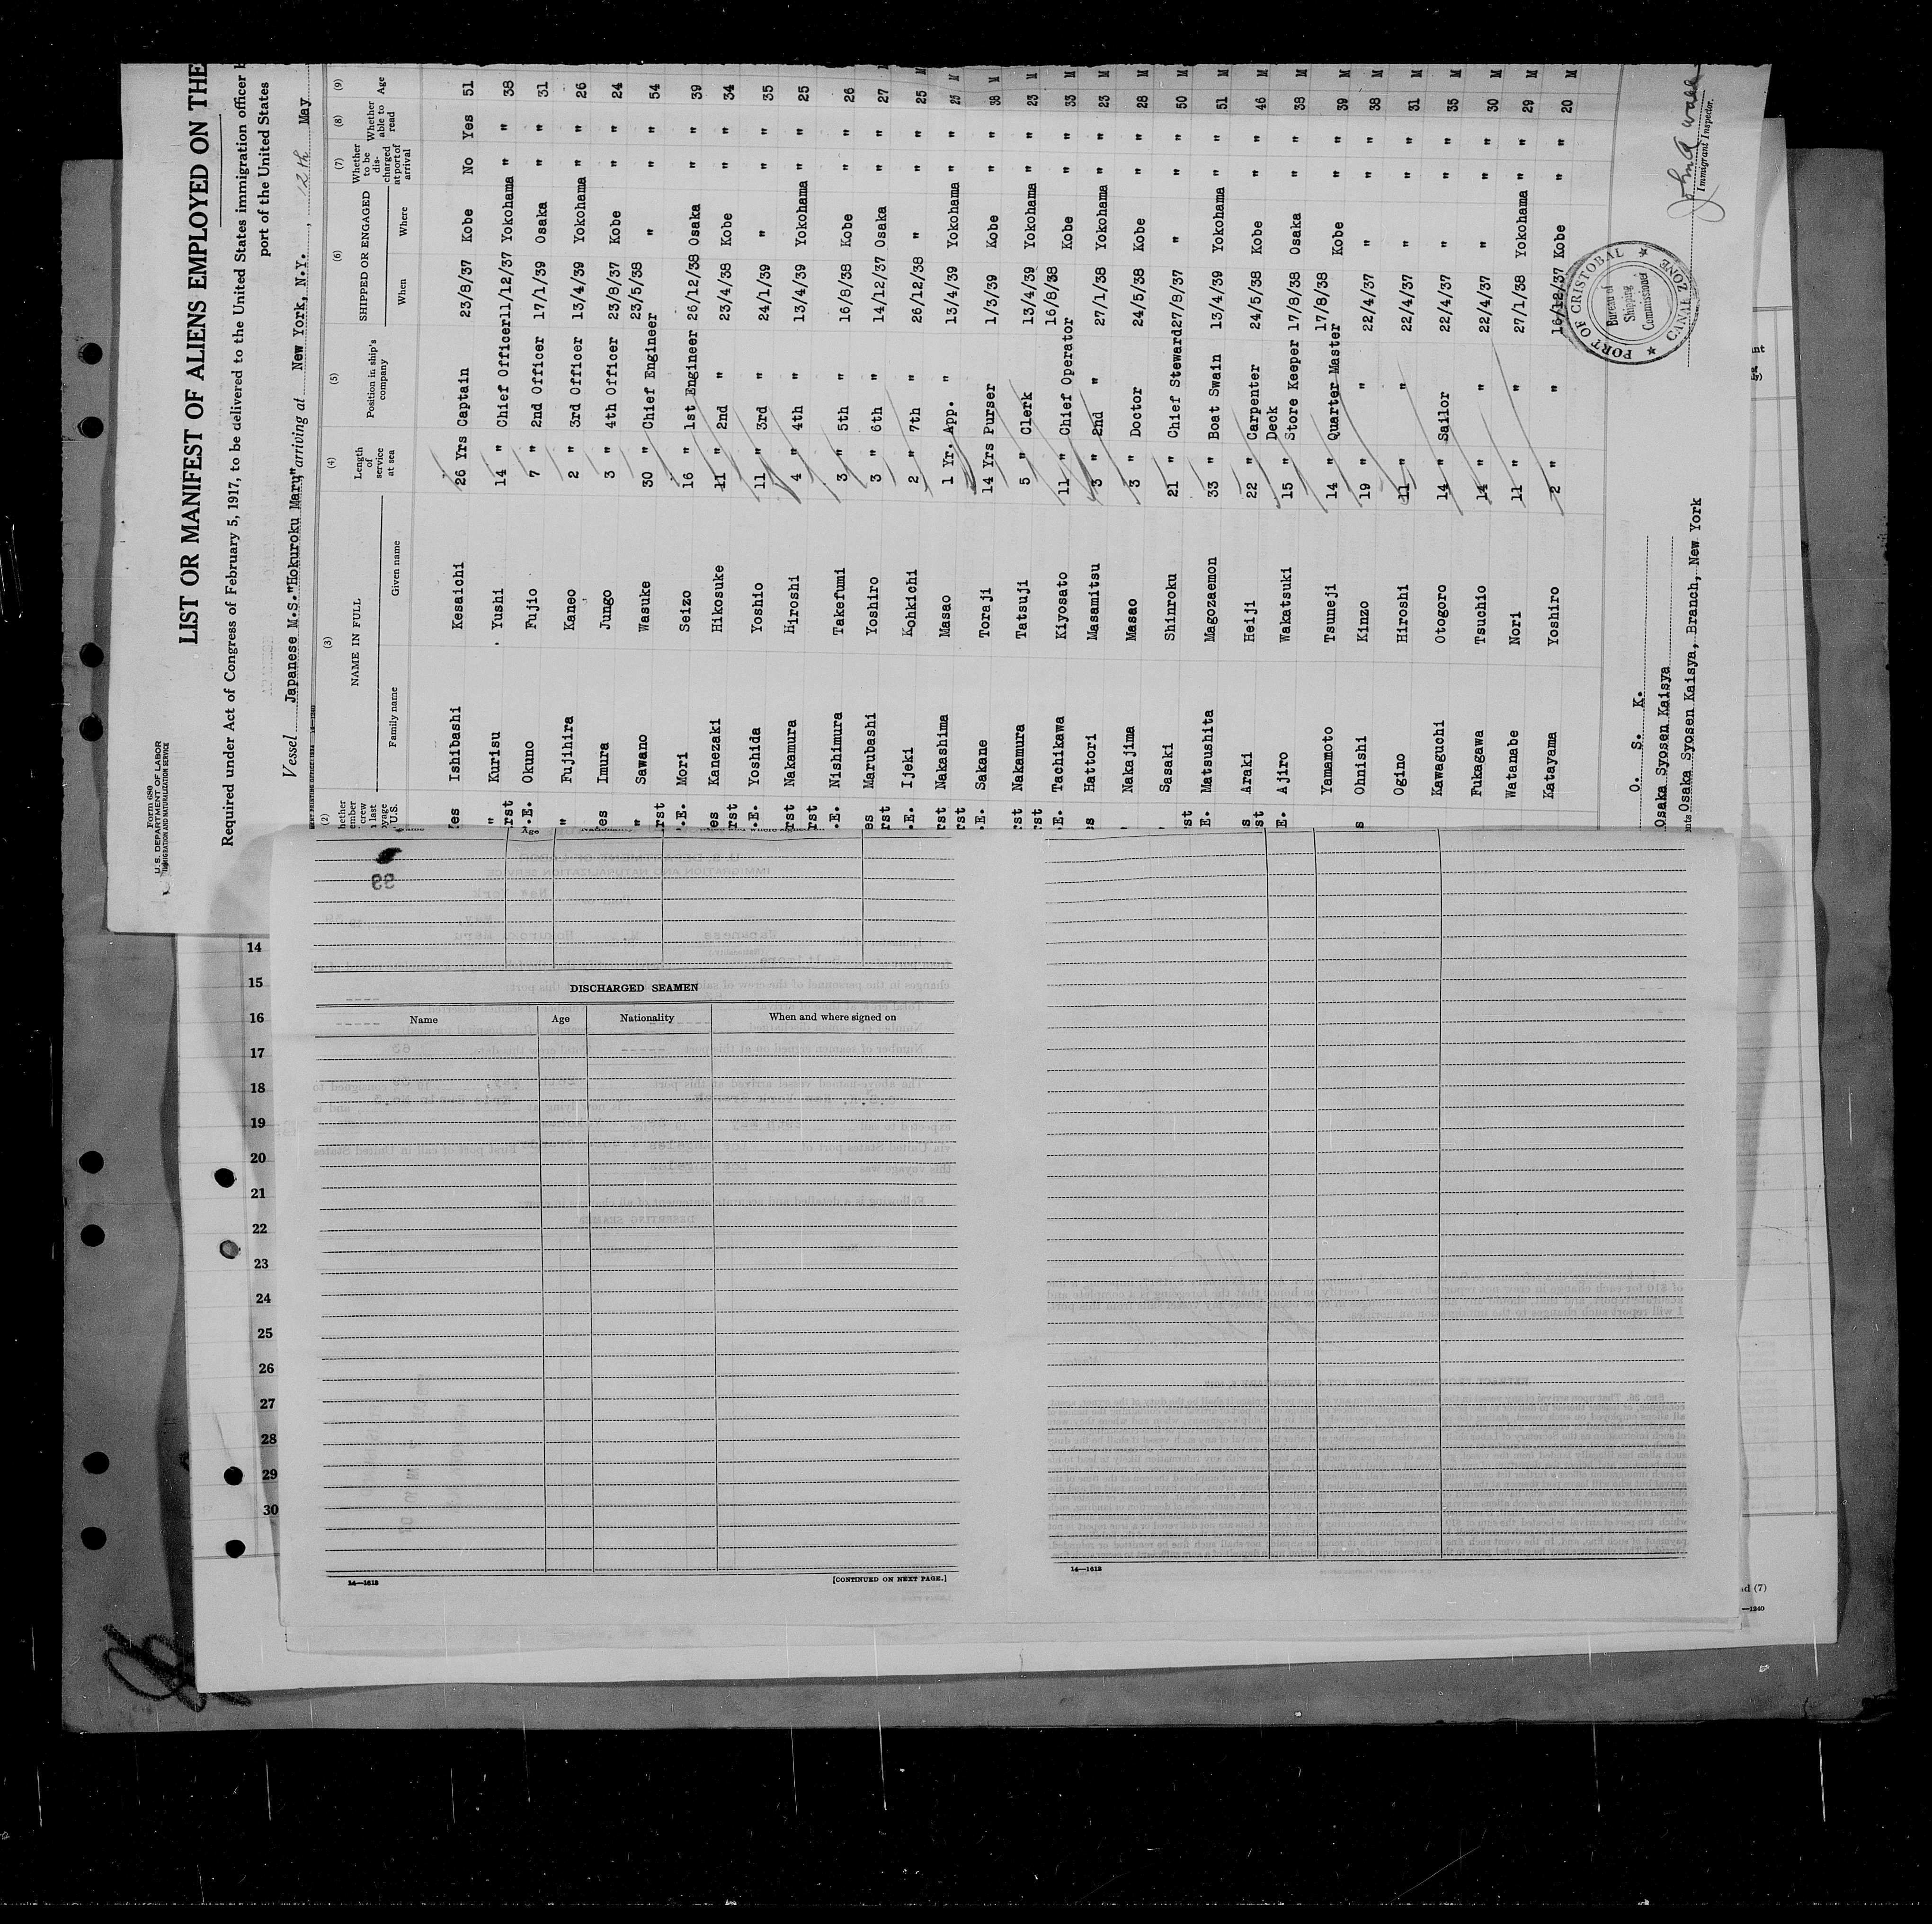 Form 680
U. S. DEPARTMENT OF LABOR
IMMIGRATION AND NATURALIZATION SERVICE
LIST OR MANIFEST OF ALIENS EMPLOYED ON THE
Required under Act of Congress of February 5, 1917, to be delivered to the United States immigration officer
port of the United States
Vessel Japanese M.S."Hokuroku Maru" arriving at New York, N.Y. , 12th May
(2) (3) (4) (5) (6) (7) (8) (9)
NAME IN FULL
Family name Given name
Length of service at sea
Position in ship's company
SHIPPED OR ENGAGED
When Where
Whether to be discharged at port of arrival
Whether able to read
Age
Ishibashi Kesaichi 26 Yrs Captain 23/8/37 Kobe No Yes 51
" Kurisu Yushi 14 " Chief Officer 11/12/37 Yokohama " " 38
Okuno Fujio 7 " 2nd Officer 17/1/39 Osaka " " 31
" Fujihira Kaneo 2 " 3rd Officer 13/4/39 Yokohama " " 26
Imura Jungo 3 " 4th Officer 23/8/37 Kobe " " 24
" Sawano Wasuke 30 " Chief Engineer 23/5/38 " " " 54
Mori Seizo 16 " 1st Engineer 26/12/38 Osaka " " 39
Kanezaki Hikosuke 11 " 2nd " 23/4/38 Kobe " " 34
Yoshida Yoshio 11 " 3rd " 24/1/39 " " " 35
Nakamura Hiroshi 4 " 4th " 13/4/39 Yokohama " " 25
Nishimura Takefumi 3 " 5th " 16/8/38 Kobe " " 26
Marubashi Yoshiro 3 " 6th " 14/12/37 Osaka " " 27 M
Ijeki Kohkichi 2 " 7th " 26/12/38 " " " 25 M
Nakashima Masao 1 Yr. App. " 13/4/39 Yokohama " " 25 M
Sakane Toraji 14 Yrs Purser 1/3/39 Kobe " " 38 M
Nakamura Tatsuji 5 " Clerk 13/4/39 Yokohama " " 23 M
Tachikawa Kiyosato 11 " Chief Operator 16/8/38 Kobe " " 33 M
Hattori Masamitsu 3 " 2nd " 27/1/38 Yokohama " " 23 M
Nakajima Masao 3 " Doctor 24/5/38 Kobe " " 28 M
Sasaki Shinroku 21 " Chief Steward 27/8/37 " " " 50 M
Matsushita Magozaemon 33 " Boat Swain 13/4/39 Yokohama " " 51 M
Araki Heiji 22 " Carpenter 24/5/38 Kobe " " 46 M
Ajiro Wakatsuki 15 " Deck Store Keeper 17/8/38 Osaka " " 38 M
Yamamoto Tsuneji 14 " Quarter Master 17/8/38 Kobe " " 39 M
Ohnishi Kinzo 19 " " 22/4/37 " " " 38 M
Ogino Hiroshi 11 " " 22/4/37 " " " 31 M
Kawaguchi Otogoro 14 " Sailor 22/4/37 " " " 35 M
Fukagawa Tsuchio 14 " " 22/4/37 " " " 30 M
Watanabe Nori 11 " " 27/1/38 Yokohama " " 29 M
Katayama Yoshiro 2 " " 16/12/37 Kobe " " 20 M
PORT OF CRISTOBAL
Bureau of
Shipping
Commissioner
CANAL ZONE
Immigrant Inspector.
O. S. K.
Osaka Syosen Kaisya
Osaka Syosen Kaisya, Branch, New York
14
15
16
17
18
19
20
21
22
23
24
25
26
27
28
29
30
DISCHARGED SEAMEN
Name Age Nationality When and where signed on
14—1612 [CONTINUED ON NEXT PAGE.]
14—1612
(7)
—1240